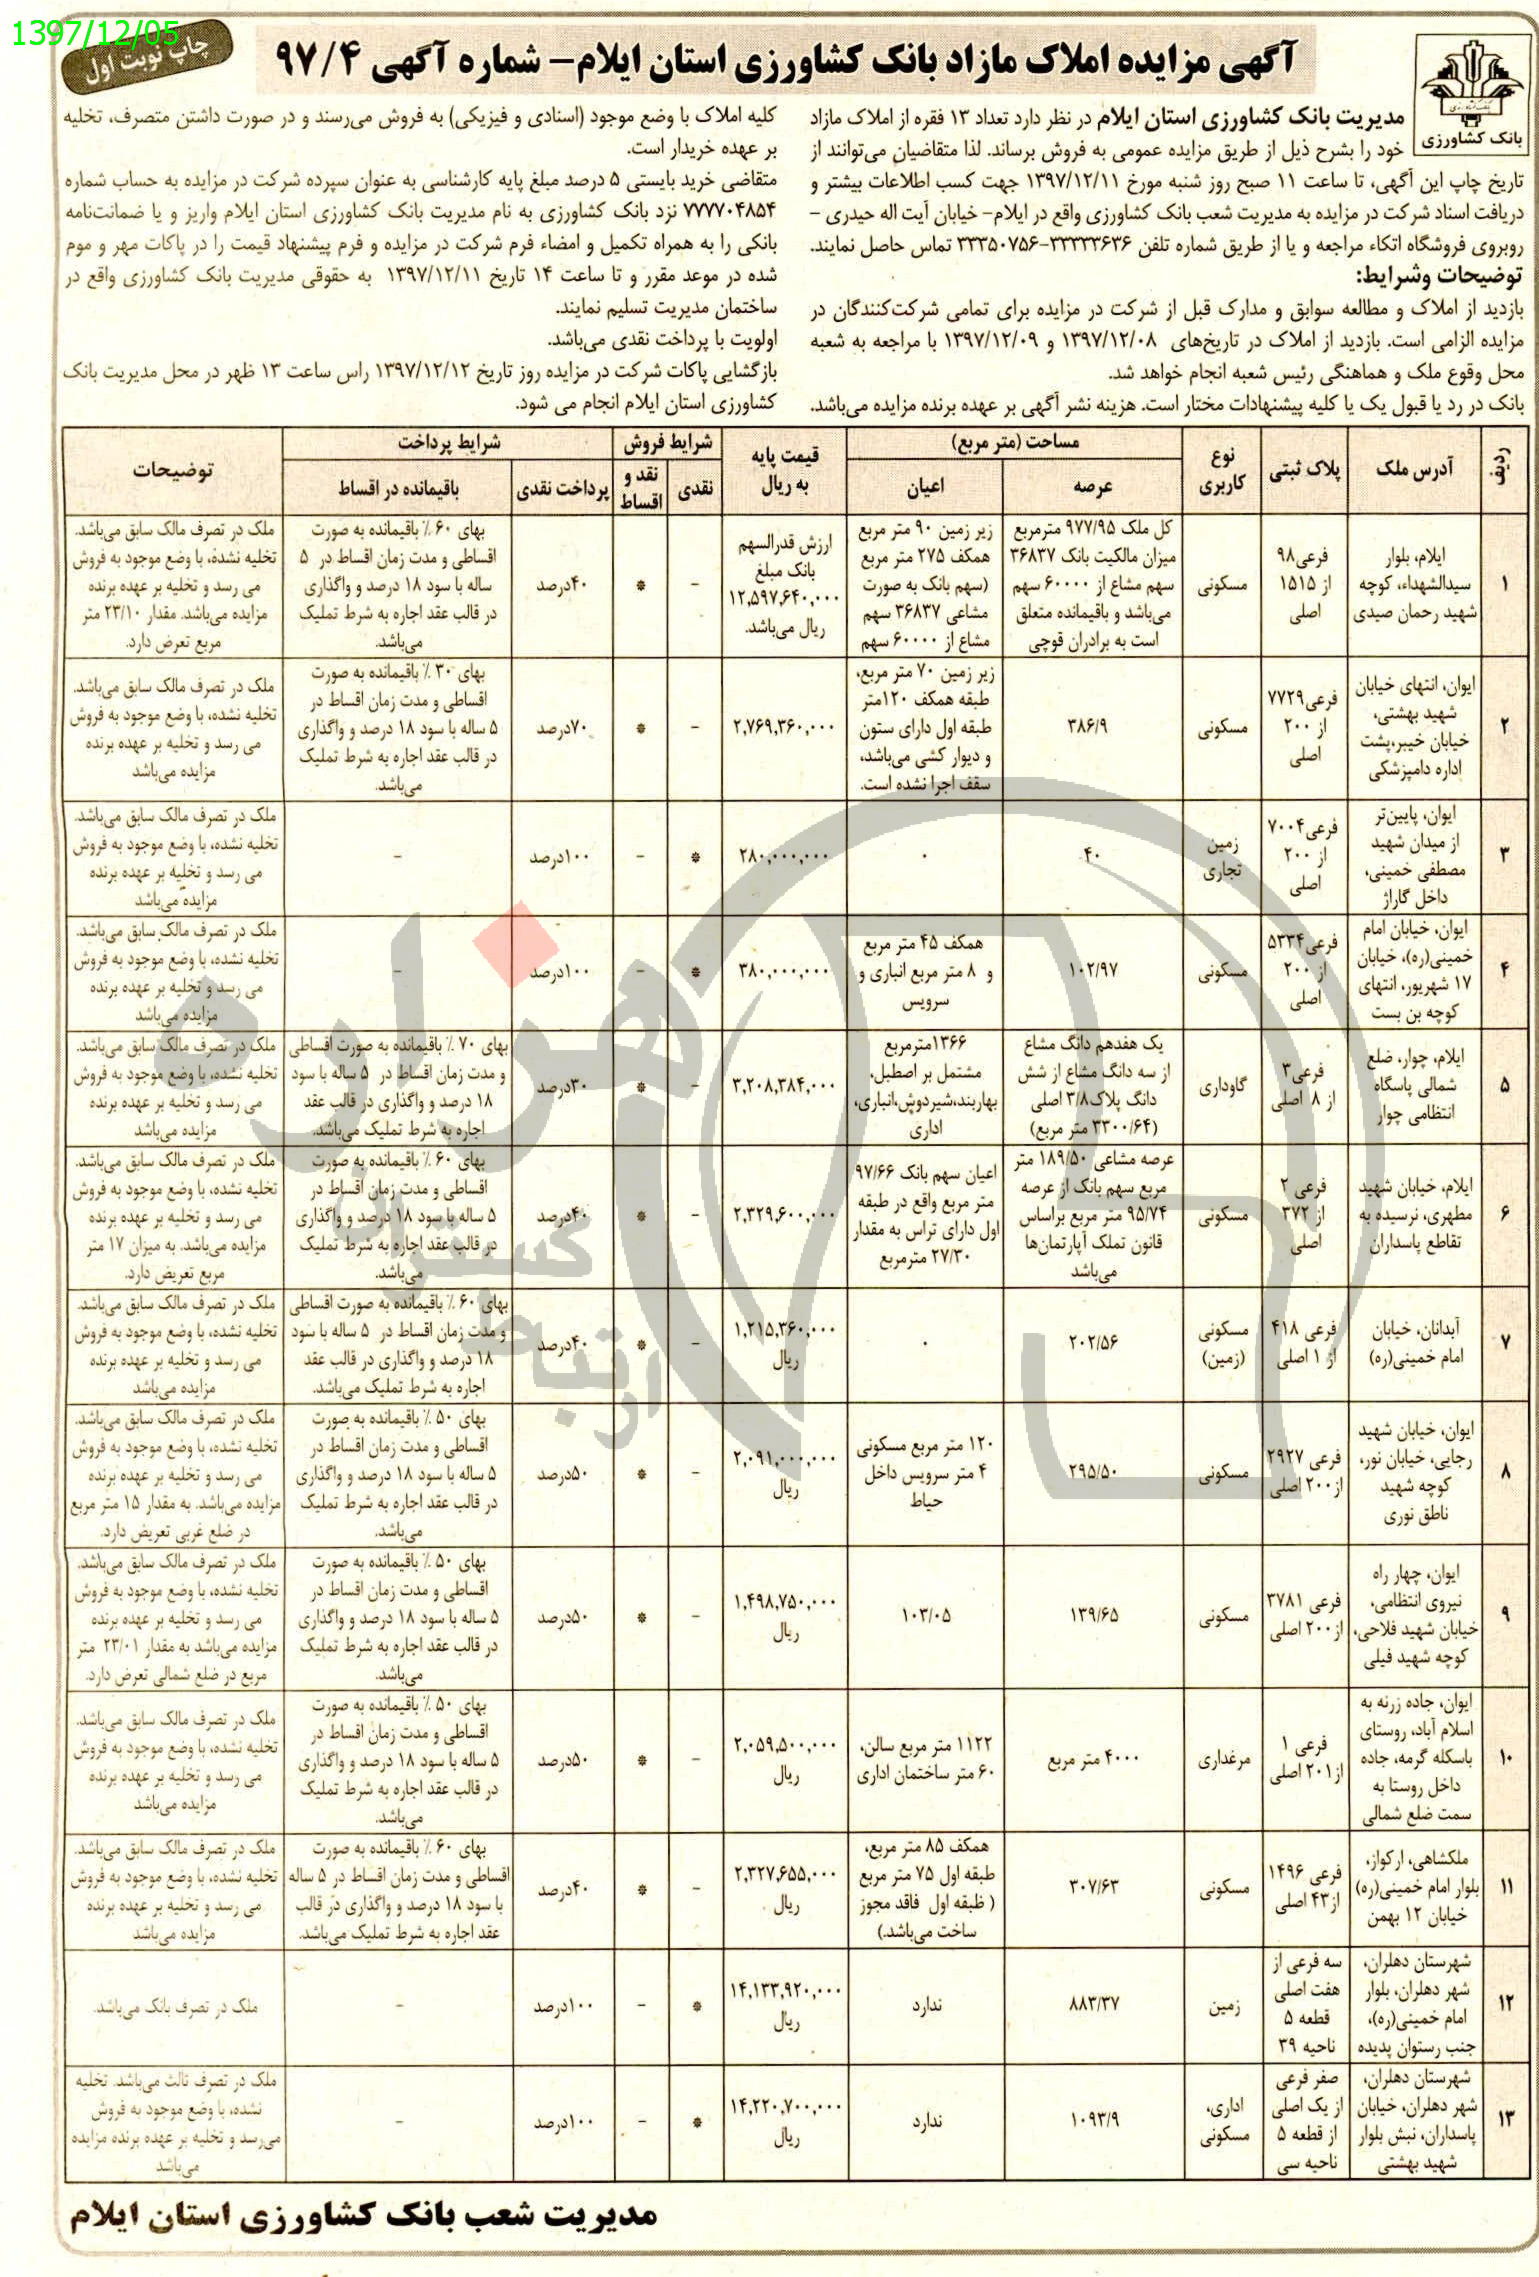 1397/12/05
چاپ نوبت اول
آگهی مزایده املاک مازاد بانک کشاورزی استان ایلام- شماره آگهی ۹۷/۴
بانک کشاورزی
مدیریت بانک کشاورزی استان ایلام در نظر دارد تعداد ۱۳ فقره از املاک مازاد
خود را بشرح ذیل از طریق مزایده عمومی به فروش برساند. لذا متقاضیان می‌توانند از
تاریخ چاپ این آگهی، تا ساعت ۱۱ صبح روز شنبه مورخ ۱۳۹۷/۱۲/۱۱ جهت کسب اطلاعات بیشتر و
دریافت اسناد شرکت در مزایده به مدیریت شعب بانک کشاورزی واقع در ایلام- خیابان آیت اله حیدری -
روبروی فروشگاه اتکاء مراجعه و یا از طریق شماره تلفن ۳۳۳۳۳۶۳۶-۳۳۳۵۰۷۵۶ تماس حاصل نمایند.
توضیحات وشرایط:
بازدید از املاک و مطالعه سوابق و مدارک قبل از شرکت در مزایده برای تمامی شرکت‌کنندگان در
مزایده الزامی است. بازدید از املاک در تاریخ‌های ۱۳۹۷/۱۲/۰۸ و ۱۳۹۷/۱۲/۰۹ با مراجعه به شعبه
محل وقوع ملک و هماهنگی رئیس شعبه انجام خواهد شد.
بانک در رد یا قبول یک یا کلیه پیشنهادات مختار است. هزینه نشر آگهی بر عهده برنده مزایده می‌باشد.
کلیه املاک با وضع موجود (اسنادی و فیزیکی) به فروش می‌رسند و در صورت داشتن متصرف، تخلیه
بر عهده خریدار است.
متقاضی خرید بایستی ۵ درصد مبلغ پایه کارشناسی به عنوان سپرده شرکت در مزایده به حساب شماره
۷۷۷۷۰۴۸۵۴ نزد بانک کشاورزی به نام مدیریت بانک کشاورزی استان ایلام واریز و یا ضمانت‌نامه
بانکی را به همراه تکمیل و امضاء فرم شرکت در مزایده و فرم پیشنهاد قیمت را در پاکات مهر و موم
شده در موعد مقرر و تا ساعت ۱۴ تاریخ ۱۳۹۷/۱۲/۱۱ به حقوقی مدیریت بانک کشاورزی واقع در
ساختمان مدیریت تسلیم نمایند.
اولویت با پرداخت نقدی می‌باشد.
بازگشایی پاکات شرکت در مزایده روز تاریخ ۱۳۹۷/۱۲/۱۲ راس ساعت ۱۳ ظهر در محل مدیریت بانک
کشاورزی استان ایلام انجام می شود.
ردیف | آدرس ملک | پلاک ثبتی | نوع کاربری | مساحت (متر مربع) | قیمت پایه به ریال | شرایط فروش | شرایط پرداخت | توضیحات
عرصه | اعیان | نقدی | نقد و اقساط | پرداخت نقدی | باقیمانده در اقساط
۱ | ایلام، بلوار سیدالشهداء، کوچه شهید رحمان صیدی | ۹۸فرعی از ۱۵۱۵ اصلی | مسکونی | کل ملک ۹۷۷/۹۵ مترمربع میزان مالکیت بانک ۳۶۸۳۷ سهم مشاع از ۶۰۰۰۰ سهم می‌باشد و باقیمانده متعلق است به برادران قوچی | زیر زمین ۹۰ متر مربع همکف ۲۷۵ متر مربع (سهم بانک به صورت مشاعی ۳۶۸۳۷ سهم مشاع از ۶۰۰۰۰ سهم | ارزش قدرالسهم بانک مبلغ ۱۲,۵۹۷,۶۴۰,۰۰۰ ریال می‌باشد. | - | * | ۴۰درصد | بهای ۶۰ ٪ باقیمانده به صورت اقساطی و مدت زمان اقساط در ۵ ساله با سود ۱۸ درصد و واگذاری در قالب عقد اجاره به شرط تملیک می‌باشد. | ملک در تصرف مالک سابق می‌باشد. تخلیه نشده، با وضع موجود به فروش می رسد و تخلیه بر عهده برنده مزایده می‌باشد. مقدار ۲۳/۱۰ متر مربع تعرض دارد.
۲ | ایوان، انتهای خیابان شهید بهشتی، خیابان خیبر،پشت اداره دامپزشکی | ۷۷۲۹فرعی از ۲۰۰ اصلی | مسکونی | ۳۸۶/۹ | زیر زمین ۷۰ متر مربع، طبقه همکف ۱۲۰متر طبقه اول دارای ستون و دیوار کشی می‌باشد، سقف اجرا نشده است. | ۲,۷۶۹,۳۶۰,۰۰۰ | - | * | ۷۰درصد | بهای ۳۰ ٪ باقیمانده به صورت اقساطی و مدت زمان اقساط در ۵ ساله با سود ۱۸ درصد و واگذاری در قالب عقد اجاره به شرط تملیک می‌باشد. | ملک در تصرف مالک سابق می‌باشد. تخلیه نشده، با وضع موجود به فروش می رسد و تخلیه بر عهده برنده مزایده می‌باشد
۳ | ایوان، پایین‌تر از میدان شهید مصطفی خمینی، داخل گاراژ | ۷۰۰۴فرعی از ۲۰۰ اصلی | زمین تجاری | ۴۰ | ۰ | ۲۸۰,۰۰۰,۰۰۰ | * | - | ۱۰۰درصد | - | ملک در تصرف مالک سابق می‌باشد. تخلیه نشده، با وضع موجود به فروش می رسد و تخلیه بر عهده برنده مزایده می‌باشد
۴ | ایوان، خیابان امام خمینی(ره)، خیابان ۱۷ شهریور، انتهای کوچه بن بست | ۵۳۳۴فرعی از ۲۰۰ اصلی | مسکونی | ۱۰۲/۹۷ | همکف ۴۵ متر مربع و ۸ متر مربع انباری و سرویس | ۳۸۰,۰۰۰,۰۰۰ | * | - | ۱۰۰درصد | - | ملک در تصرف مالک سابق می‌باشد. تخلیه نشده، با وضع موجود به فروش می رسد و تخلیه بر عهده برنده مزایده می‌باشد
۵ | ایلام، چوار، ضلع شمالی پاسگاه انتظامی چوار | ۳فرعی از ۸ اصلی | گاوداری | یک هفدهم دانگ مشاع از سه دانگ مشاع از شش دانگ پلاک۳/۸ اصلی (۳۳۰۰/۶۴ متر مربع) | ۱۳۶۶مترمربع مشتمل بر اصطبل، بهاربند،شیردوش،انباری، اداری | ۳,۲۰۸,۳۸۴,۰۰۰ | - | * | ۳۰درصد | بهای ۷۰ ٪ باقیمانده به صورت اقساطی و مدت زمان اقساط در ۵ ساله با سود ۱۸ درصد و واگذاری در قالب عقد اجاره به شرط تملیک می‌باشد. | ملک در تصرف مالک سابق می‌باشد. تخلیه نشده، با وضع موجود به فروش می رسد و تخلیه بر عهده برنده مزایده می‌باشد
۶ | ایلام، خیابان شهید مطهری، نرسیده به تقاطع پاسداران | ۲ فرعی از ۳۷۲ اصلی | مسکونی | عرصه مشاعی ۱۸۹/۵۰ متر مربع سهم بانک از عرصه ۹۵/۷۴ متر مربع براساس قانون تملک آپارتمان‌ها می‌باشد | اعیان سهم بانک ۹۷/۶۶ متر مربع واقع در طبقه اول دارای تراس به مقدار ۲۷/۳۰ مترمربع | ۲,۳۲۹,۶۰۰,۰۰۰ | - | * | ۴۰درصد | بهای ۶۰ ٪ باقیمانده به صورت اقساطی و مدت زمان اقساط در ۵ ساله با سود ۱۸ درصد و واگذاری در قالب عقد اجاره به شرط تملیک می‌باشد. | ملک در تصرف مالک سابق می‌باشد. تخلیه نشده، با وضع موجود به فروش می رسد و تخلیه بر عهده برنده مزایده می‌باشد. به میزان ۱۷ متر مربع تعریض دارد.
۷ | آبدانان، خیابان امام خمینی(ره) | ۴۱۸ فرعی از ۱ اصلی | مسکونی (زمین) | ۲۰۲/۵۶ | ۰ | ۱,۲۱۵,۳۶۰,۰۰۰ ریال | - | * | ۴۰درصد | بهای ۶۰ ٪ باقیمانده به صورت اقساطی و مدت زمان اقساط در ۵ ساله با سود ۱۸ درصد و واگذاری در قالب عقد اجاره به شرط تملیک می‌باشد. | ملک در تصرف مالک سابق می‌باشد. تخلیه نشده، با وضع موجود به فروش می رسد و تخلیه بر عهده برنده مزایده می‌باشد
۸ | ایوان، خیابان شهید رجایی، خیابان نور، کوچه شهید ناطق نوری | ۲۹۲۷ فرعی از۲۰۰ اصلی | مسکونی | ۲۹۵/۵۰ | ۱۲۰ متر مربع مسکونی ۴ متر سرویس داخل حیاط | ۲,۰۹۱,۰۰۰,۰۰۰ ریال | - | * | ۵۰درصد | بهای ۵۰ ٪ باقیمانده به صورت اقساطی و مدت زمان اقساط در ۵ ساله با سود ۱۸ درصد و واگذاری در قالب عقد اجاره به شرط تملیک می‌باشد. | ملک در تصرف مالک سابق می‌باشد. تخلیه نشده، با وضع موجود به فروش می رسد و تخلیه بر عهده برنده مزایده می‌باشد. به مقدار ۱۵ متر مربع در ضلع غربی تعریض دارد.
۹ | ایوان، چهار راه نیروی انتظامی، خیابان شهید فلاحی، کوچه شهید فیلی | ۳۷۸۱ فرعی از۲۰۰ اصلی | مسکونی | ۱۳۹/۶۵ | ۱۰۳/۰۵ | ۱,۴۹۸,۷۵۰,۰۰۰ ریال | - | * | ۵۰درصد | بهای ۵۰ ٪ باقیمانده به صورت اقساطی و مدت زمان اقساط در ۵ ساله با سود ۱۸ درصد و واگذاری در قالب عقد اجاره به شرط تملیک می‌باشد. | ملک در تصرف مالک سابق می‌باشد. تخلیه نشده، با وضع موجود به فروش می رسد و تخلیه بر عهده برنده مزایده می‌باشد به مقدار ۲۳/۰۱ متر مربع در ضلع شمالی تعرض دارد.
۱۰ | ایوان، جاده زرنه به اسلام آباد، روستای باسکله گرمه، جاده داخل روستا به سمت ضلع شمالی | ۱ فرعی از۲۰۱ اصلی | مرغداری | ۴۰۰۰ متر مربع | ۱۱۲۲ متر مربع سالن، ۶۰ متر ساختمان اداری | ۲,۰۵۹,۵۰۰,۰۰۰ ریال | - | * | ۵۰درصد | بهای ۵۰ ٪ باقیمانده به صورت اقساطی و مدت زمان اقساط در ۵ ساله با سود ۱۸ درصد و واگذاری در قالب عقد اجاره به شرط تملیک می‌باشد. | ملک در تصرف مالک سابق می‌باشد. تخلیه نشده، با وضع موجود به فروش می رسد و تخلیه بر عهده برنده مزایده می‌باشد
۱۱ | ملکشاهی، ارکواز، بلوار امام خمینی(ره) خیابان ۱۲ بهمن | ۱۴۹۶ فرعی از۴۳ اصلی | مسکونی | ۳۰۷/۶۳ | همکف ۸۵ متر مربع، طبقه اول ۷۵ متر مربع ( طبقه اول فاقد مجوز ساخت می‌باشد.) | ۲,۳۲۷,۶۵۵,۰۰۰ ریال | - | * | ۴۰درصد | بهای ۶۰ ٪ باقیمانده به صورت اقساطی و مدت زمان اقساط در ۵ ساله با سود ۱۸ درصد و واگذاری در قالب عقد اجاره به شرط تملیک می‌باشد. | ملک در تصرف مالک سابق می‌باشد. تخلیه نشده، با وضع موجود به فروش می رسد و تخلیه بر عهده برنده مزایده می‌باشد
۱۲ | شهرستان دهلران، شهر دهلران، بلوار امام خمینی(ره)، جنب رستوان پدیده | سه فرعی از هفت اصلی قطعه ۵ ناحیه ۳۹ | زمین | ۸۸۳/۳۷ | ندارد | ۱۴,۱۳۳,۹۲۰,۰۰۰ ریال | * | - | ۱۰۰درصد | - | ملک در تصرف بانک می‌باشد.
۱۳ | شهرستان دهلران، شهر دهلران، خیابان پاسداران، نبش بلوار شهید بهشتی | صفر فرعی از یک اصلی از قطعه ۵ ناحیه سی | اداری، مسکونی | ۱۰۹۳/۹ | ندارد | ۱۴,۲۲۰,۷۰۰,۰۰۰ ریال | * | - | ۱۰۰درصد | - | ملک در تصرف ثالث می‌باشد. تخلیه نشده، با وضع موجود به فروش می‌رسد و تخلیه بر عهده برنده مزایده می‌باشد
مدیریت شعب بانک کشاورزی استان ایلام
هزاره